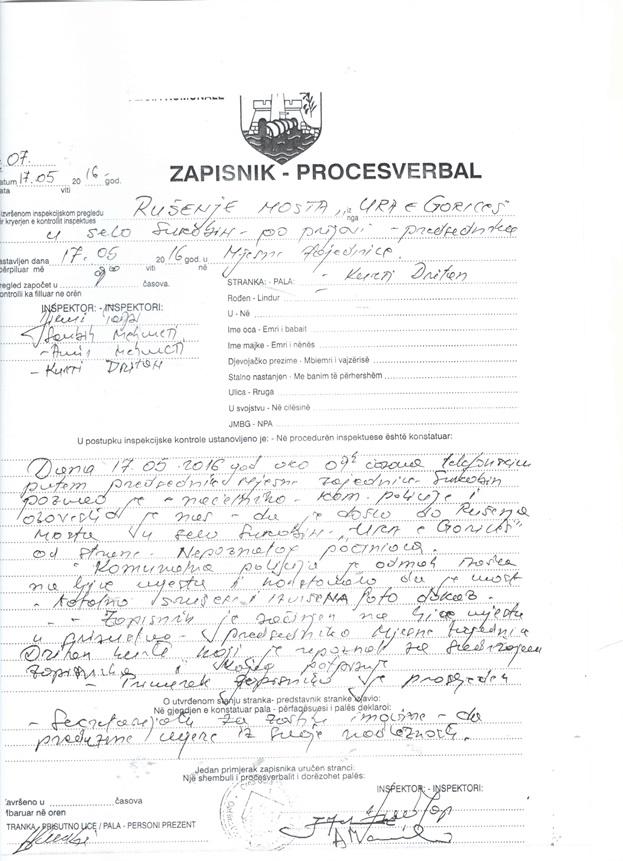 KOMUNALE
07.
atum 17.05 2016- god.
ata viti
ZAPISNIK - PROCESVERBAL
izvršenom inspekcijskom pregledu RUŠENJE MOSTA „URA E GORICËS
ër kryerjen e kontrollit inspektues nga
u selo Sukobin - po prijavi - predsednika
astavljen dana 17.05 2016 god. u Mjesne Zajednice.
përpiluar më viti në
regled započet u 9 00 časova.
ontrolli ka filluar në orën
STRANKA: - PALA: - Kurti Driton
Rođen - Lindur
U - Në
Ime oca - Emri i babait
Ime majke - Emri i nënës
Djevojačko prezime - Mbiemri i vajzërisë
Stalno nastanjen - Me banim të përhershëm
Ulica - Rruga
U svojstvu - Në cilësinë
JMBG - NPA
INSPEKTOR: - INSPEKTORI:
Mehmeti
- Amir Mehmeti
- Kurti Driton
U postupku inspekcijske kontrole ustanovljeno je: - Në procedurën inspektuese është konstatuar:
Dana 17.05.2016 god oko 09 časova telefonskim
putem predsednik mjesne zajednice Sukobin
pozvao je - načelnika - kom. policije i
obavestio je nas - da je došlo do Rušenja
Mosta u selo Sukobin - "URA e Goricës"
od strane - Nepoznatog počinioca.
- Komunalna policija je odmah izašla
na lice mjesta i konstatovala da je most
- totalno srušen i foto dokaz.
- Zapisnik je sačinjen na lice mjesta
u prisustvo - predsednika Mjesne Zajednice
Driton Kurti koji je upoznat sa sadržajem
zapisnika i potpisuje
- Primerak zapisnika je prosljeđen
O utvrđenom stanju stranka- predstavnik stranke izjavio:
Në gjendjen e konstatuar pala - përfaqësuesi i palës deklaroi:
- Secretarijatu za zaštitu imovine - da
preduzme mjere iz svoje nadležnosti.
Jedan primjerak zapisnika uručen stranci:
Një shembull i procesverbalit i dorëzohet palës:
avršeno u časova
mbaruar në oren
TRANKA - PRISUTNO LICE / PALA - PERSONI PREZENT
INSPEKTOR - INSPEKTORI: